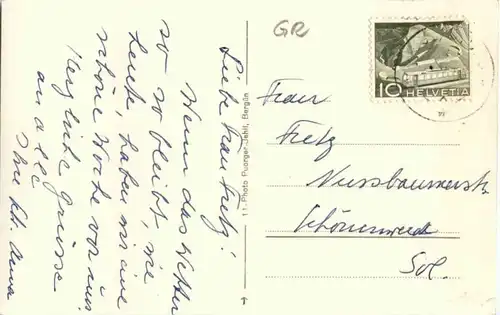 Liebe Frau Fretz!
Wenn das Wetter
so bleibt, wie
heute, haben wir eine
schöne Woche vor uns.
Herzliche Grüsse
an alle
Ihre
11. Photo Puorger-Jehli, Bergün
GR
10 HELVETIA
Frau
Fretz
Nussbaumerstr.
Schönenwerd
Sol.